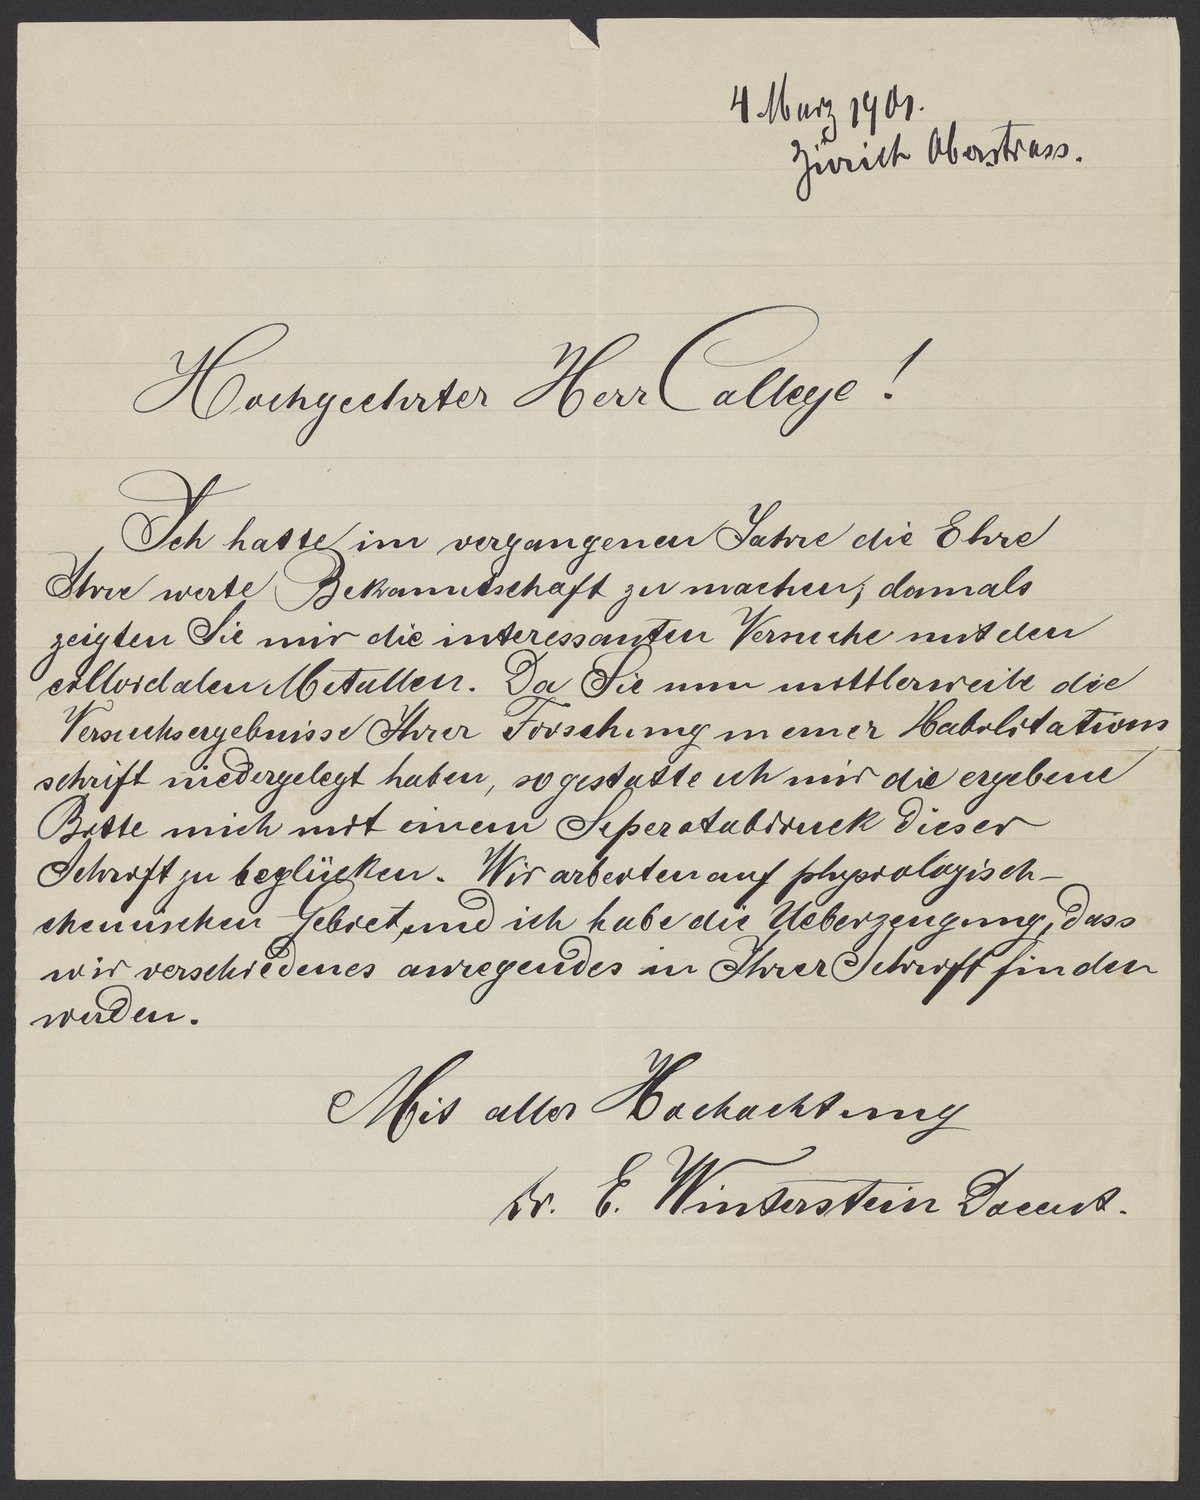 4 März 1901.
Zürich Oberstrass.
Hochgeehrter Herr College!
Ich hatte im vergangenen Jahre die Ehre
Ihre werte Bekanntschaft zu machen; damals
zeigten Sie mir die interessanten Versuche mit den
colloidalen Metallen. Da Sie nun mittlerweile die
Versuchsergebnisse Ihrer Forschung in einer Habilitations
schrift niedergelegt haben, so gestatte ich mir die ergebene
Bitte mich mit einem Seperatabdruck dieser
Schrift zu beglücken. Wir arbeiten auf physiologisch-
chemischen Gebiet, und ich habe die Ueberzeugung, dass
wir verschiedenes anregendes in Ihrer Schrift finden
werden.
Mit aller Hochachtung
Dr. E. Winterstein Docent.